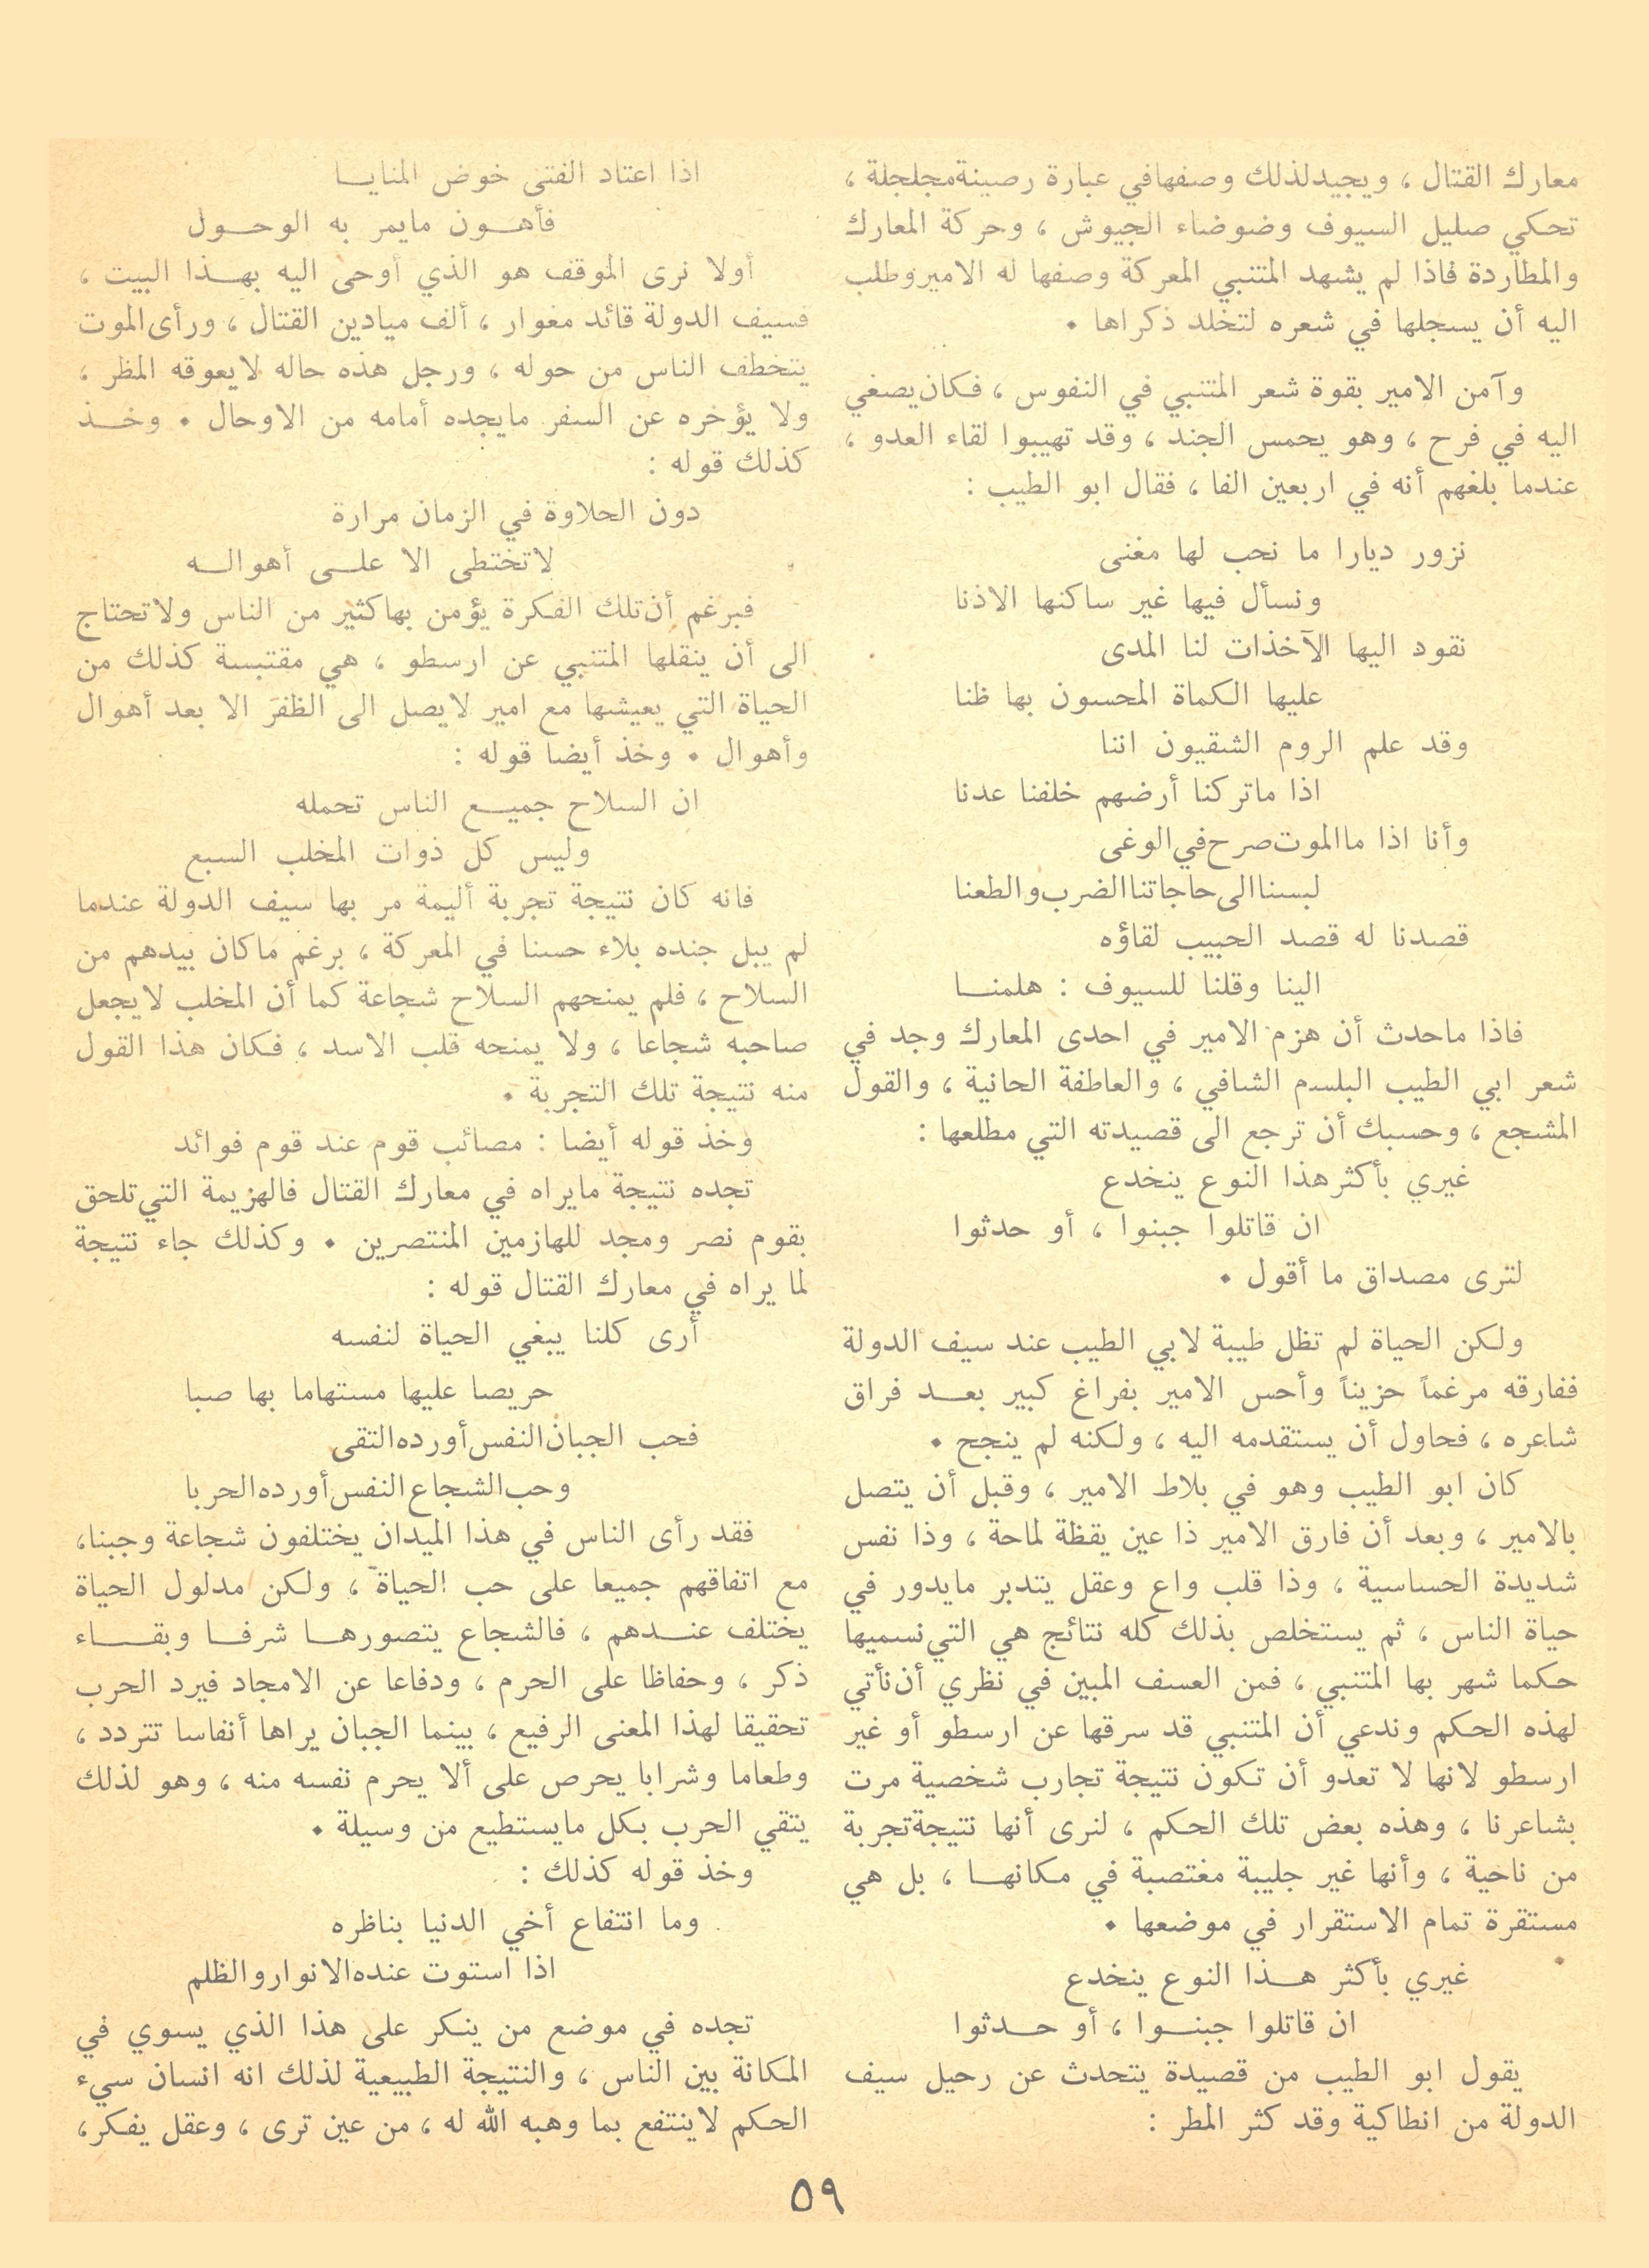 معارك القتال ، ويجيدلذلك وصفهافي عبارة رصينةمجلجلة ،
تحكي صليل السيوف وضوضاء الجيوش ، وحركة المعارك
والمطاردة فاذا لم يشهد المتنبي المعركة وصفها له الاميروطلب
اليه أن يسجلها في شعره لتخلد ذكراها •
وآمن الامير بقوة شعر المتنبي في النفوس ، فكان يصغي
اليه في فرح ، وهو يحمس الجند ، وقد تهيبوا لقاء العدو ،
عندما بلغهم أنه في اربعين الفا ، فقال ابو الطيب :
نزور ديارا ما نحب لها مغنى
ونسأل فيها غير ساكنها الاذنا
نقود اليها الآخذات لنا المدى
عليها الكماة المحسون بها ظنا
وقد علم الروم الشقيون اننا
اذا ماتركنا أرضهم خلفنا عدنا
وأنا اذا ما الموت صرح في الوغى
لبسنا الى حاجاتنا الضرب والطعنا
قصدنا له قصد الحبيب لقاؤه
الينا وقلنا للسيوف : هلمنـــا
فاذا ماحدث أن هزم الامير في احدى المعارك وجد في
شعر ابي الطيب البلسم الشافي ، والعاطفة الحانية ، والقول
المشجع ، وحسبك أن ترجع الى قصيدته التي مطلعها :
غيري بأكثر هذا النوع ينخدع
ان قاتلوا جبنوا ، أو حدثوا
لترى مصداق ما أقول •
ولكن الحياة لم تظل طيبة لابي الطيب عند سيف الدولة
ففارقه مرغماً حزيناً وأحس الامير بفراغ كبير بعـــد فراق
شاعره ، فحاول أن يستقدمه اليه ، ولكنه لم ينجح •
كان ابو الطيب وهو في بلاط الامير ، وقبل أن يتصل
بالامير ، وبعد أن فارق الامير ذا عين يقظة لماحة ، وذا نفس
شديدة الحساسية ، وذا قلب واع وعقل يتدبر مايدور في
حياة الناس ، ثم يستخلص بذلك كله نتائج هي التي نسميها
حكما شهر بها المتنبي ، فمن العسف المبين في نظري أن نأتي
لهذه الحكم وندعي أن المتنبي قد سرقها عن ارسطو أو غير
ارسطو لانها لا تعدو أن تكون نتيجة تجارب شخصية مرت
بشاعرنا ، وهذه بعض تلك الحكم ، لنرى أنها نتيجة تجربة
من ناحية ، وأنها غير جليبة مغتصبة في مكانهـــا ، بل هي
مستقرة تمام الاستقرار في موضعها •
غيري بأكثر هـــذا النوع ينخدع
ان قاتلوا جبنـــوا ، أو حـــدثوا
يقول ابو الطيب من قصيدة يتحدث عن رحيل سيف
الدولة من انطاكية وقد كثر المطر :
اذا اعتاد الفتى خوض المنايـــا
فأهـــون مايمر به الوحـــول
أولا نرى الموقف هو الذي أوحى اليه بهـــذا البيت ،
فسيف الدولة قائد مغوار ، ألف ميادين القتال ، ورأى الموت
يتخطف الناس من حوله ، ورجل هذه حاله لايعوقه المظر ،
ولا يؤخره عن السفر مايجده أمامه من الاوحال • وخـــذ
كذلك قوله :
دون الحلاوة في الزمان مرارة
لاتختطى الا علـــى أهوالـــه
فبرغم أن تلك الفكرة يؤمن بهاكثير من الناس ولاتحتاج
الى أن ينقلها المتنبي عن ارسطو ، هي مقتبسة كذلك من
الحياة التي يعيشها مع امير لايصل الى الظفر الا بعد أهوال
وأهوال • وخذ أيضا قوله :
ان السلاح جميـــع الناس تحمله
وليس كل ذوات المخلب السبع
فانه كان نتيجة تجربة أليمة مر بها سيف الدولة عندما
لم يبل جنده بلاء حسنا في المعركة ، برغم ماكان بيدهم من
السلاح ، فلم يمنحهم السلاح شجاعة كما أن المخلب لايجعل
صاحبه شجاعا ، ولا يمنحه قلب الاسد ، فكان هذا القول
منه نتيجة تلك التجربة •
وخذ قوله أيضا : مصائب قوم عند قوم فوائد
تجده نتيجة مايراه في معارك القتال فالهزيمة التي تلحق
بقوم نصر ومجد للهازمين المنتصرين • وكذلك جاء نتيجة
لما يراه في معارك القتال قوله :
أرى كلنا يبغي الحياة لنفسه
حريصا عليها مستهاما بها صبا
فحب الجبان النفس أورده التقى
وحب الشجاع النفس أورده الحربا
فقد رأى الناس في هذا الميدان يختلفون شجاعة وجبنا،
مع اتفاقهم جميعا على حب الحياة ، ولكن مدلول الحياة
يختلف عنـــدهم ، فالشجاع يتصورهـــا شرفـــا وبقـــاء
ذكر ، وحفاظا على الحرم ، ودفاعا عن الامجاد فيرد الحرب
تحقيقا لهذا المعنى الرفيع ، بينما الجبان يراها أنفاسا تتردد ،
وطعاما وشرابا يحرص على ألا يحرم نفسه منه ، وهو لذلك
يتقي الحرب بكل مايستطيع من وسيلة •
وخذ قوله كذلك :
وما انتفاع أخي الدنيا بناظره
اذا استوت عنده الانوار والظلم
تجده في موضع من ينكر على هذا الذي يسوي في
المكانة بين الناس ، والنتيجة الطبيعية لذلك انه انسان سيء
الحكم لاينتفع بما وهبه الله له ، من عين ترى ، وعقل يفكر،
٥٩